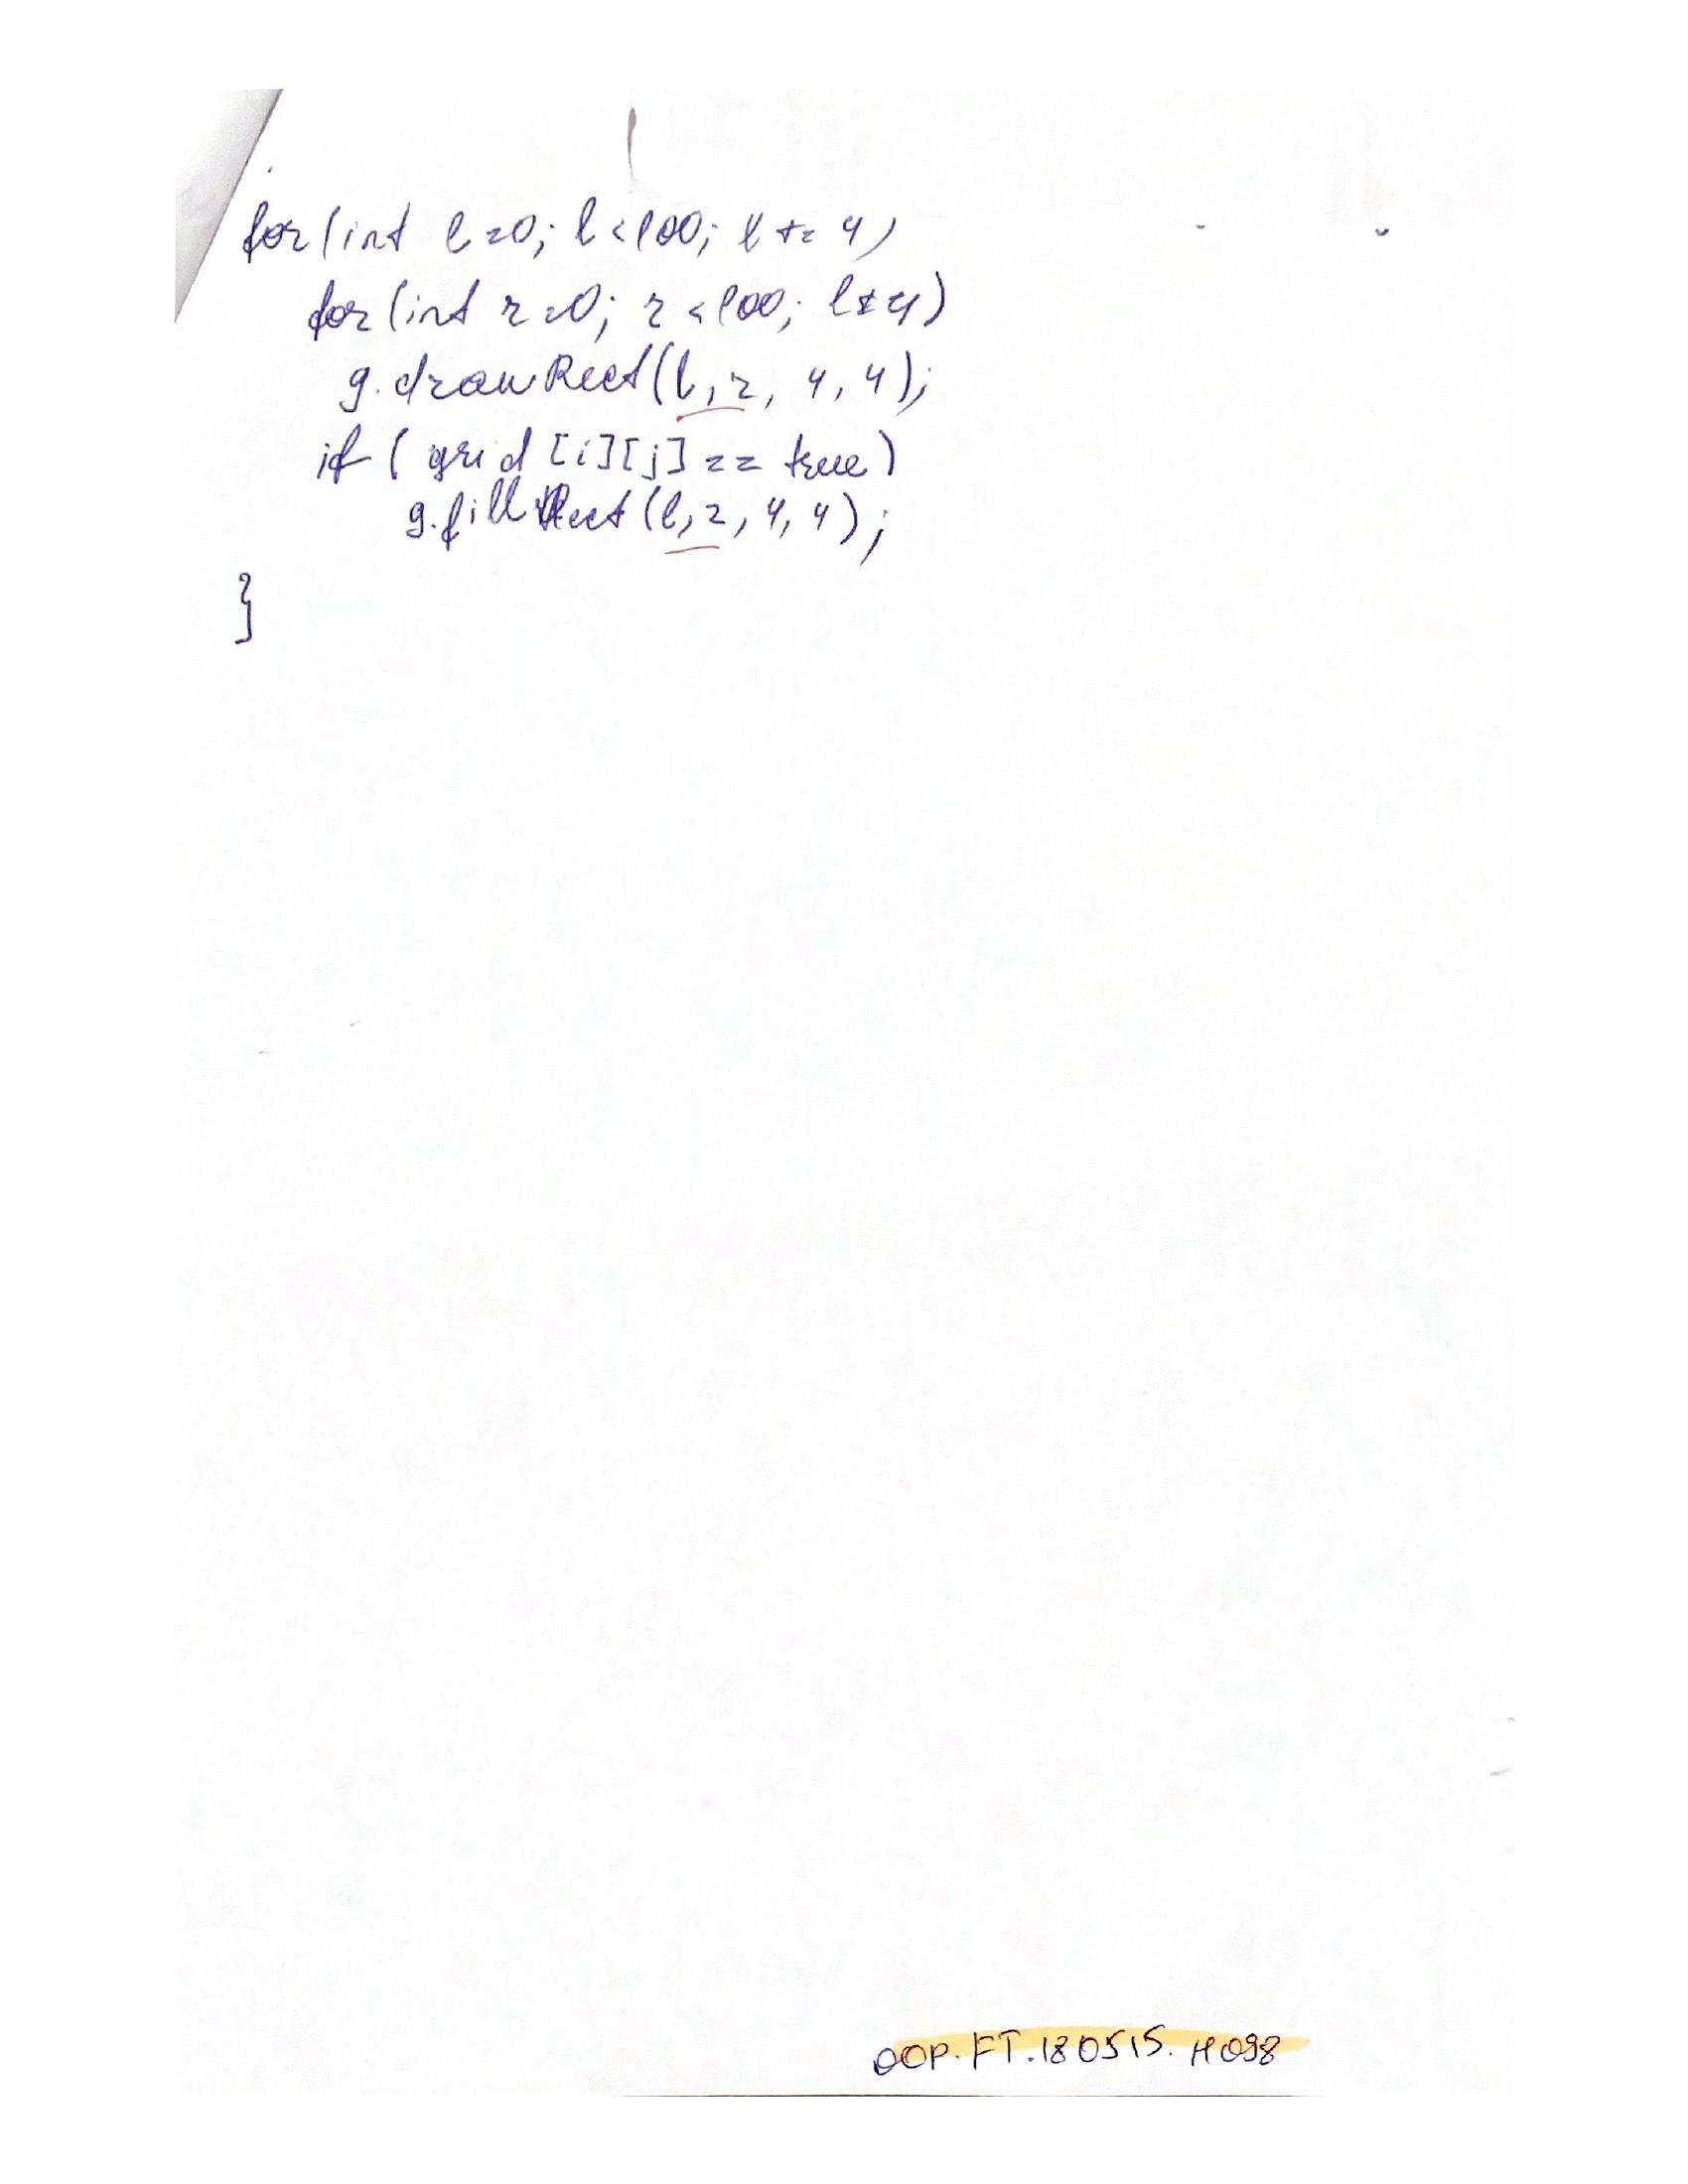 for(int l=0; l<100; l += 4)
for(int r=0; r<100; l+=4)
g.drawRect(l, r, 4, 4);
if ( grid [i][j] == true)
g.fillRect (l, r, 4, 4);
}
OOP.FT.180515.H098